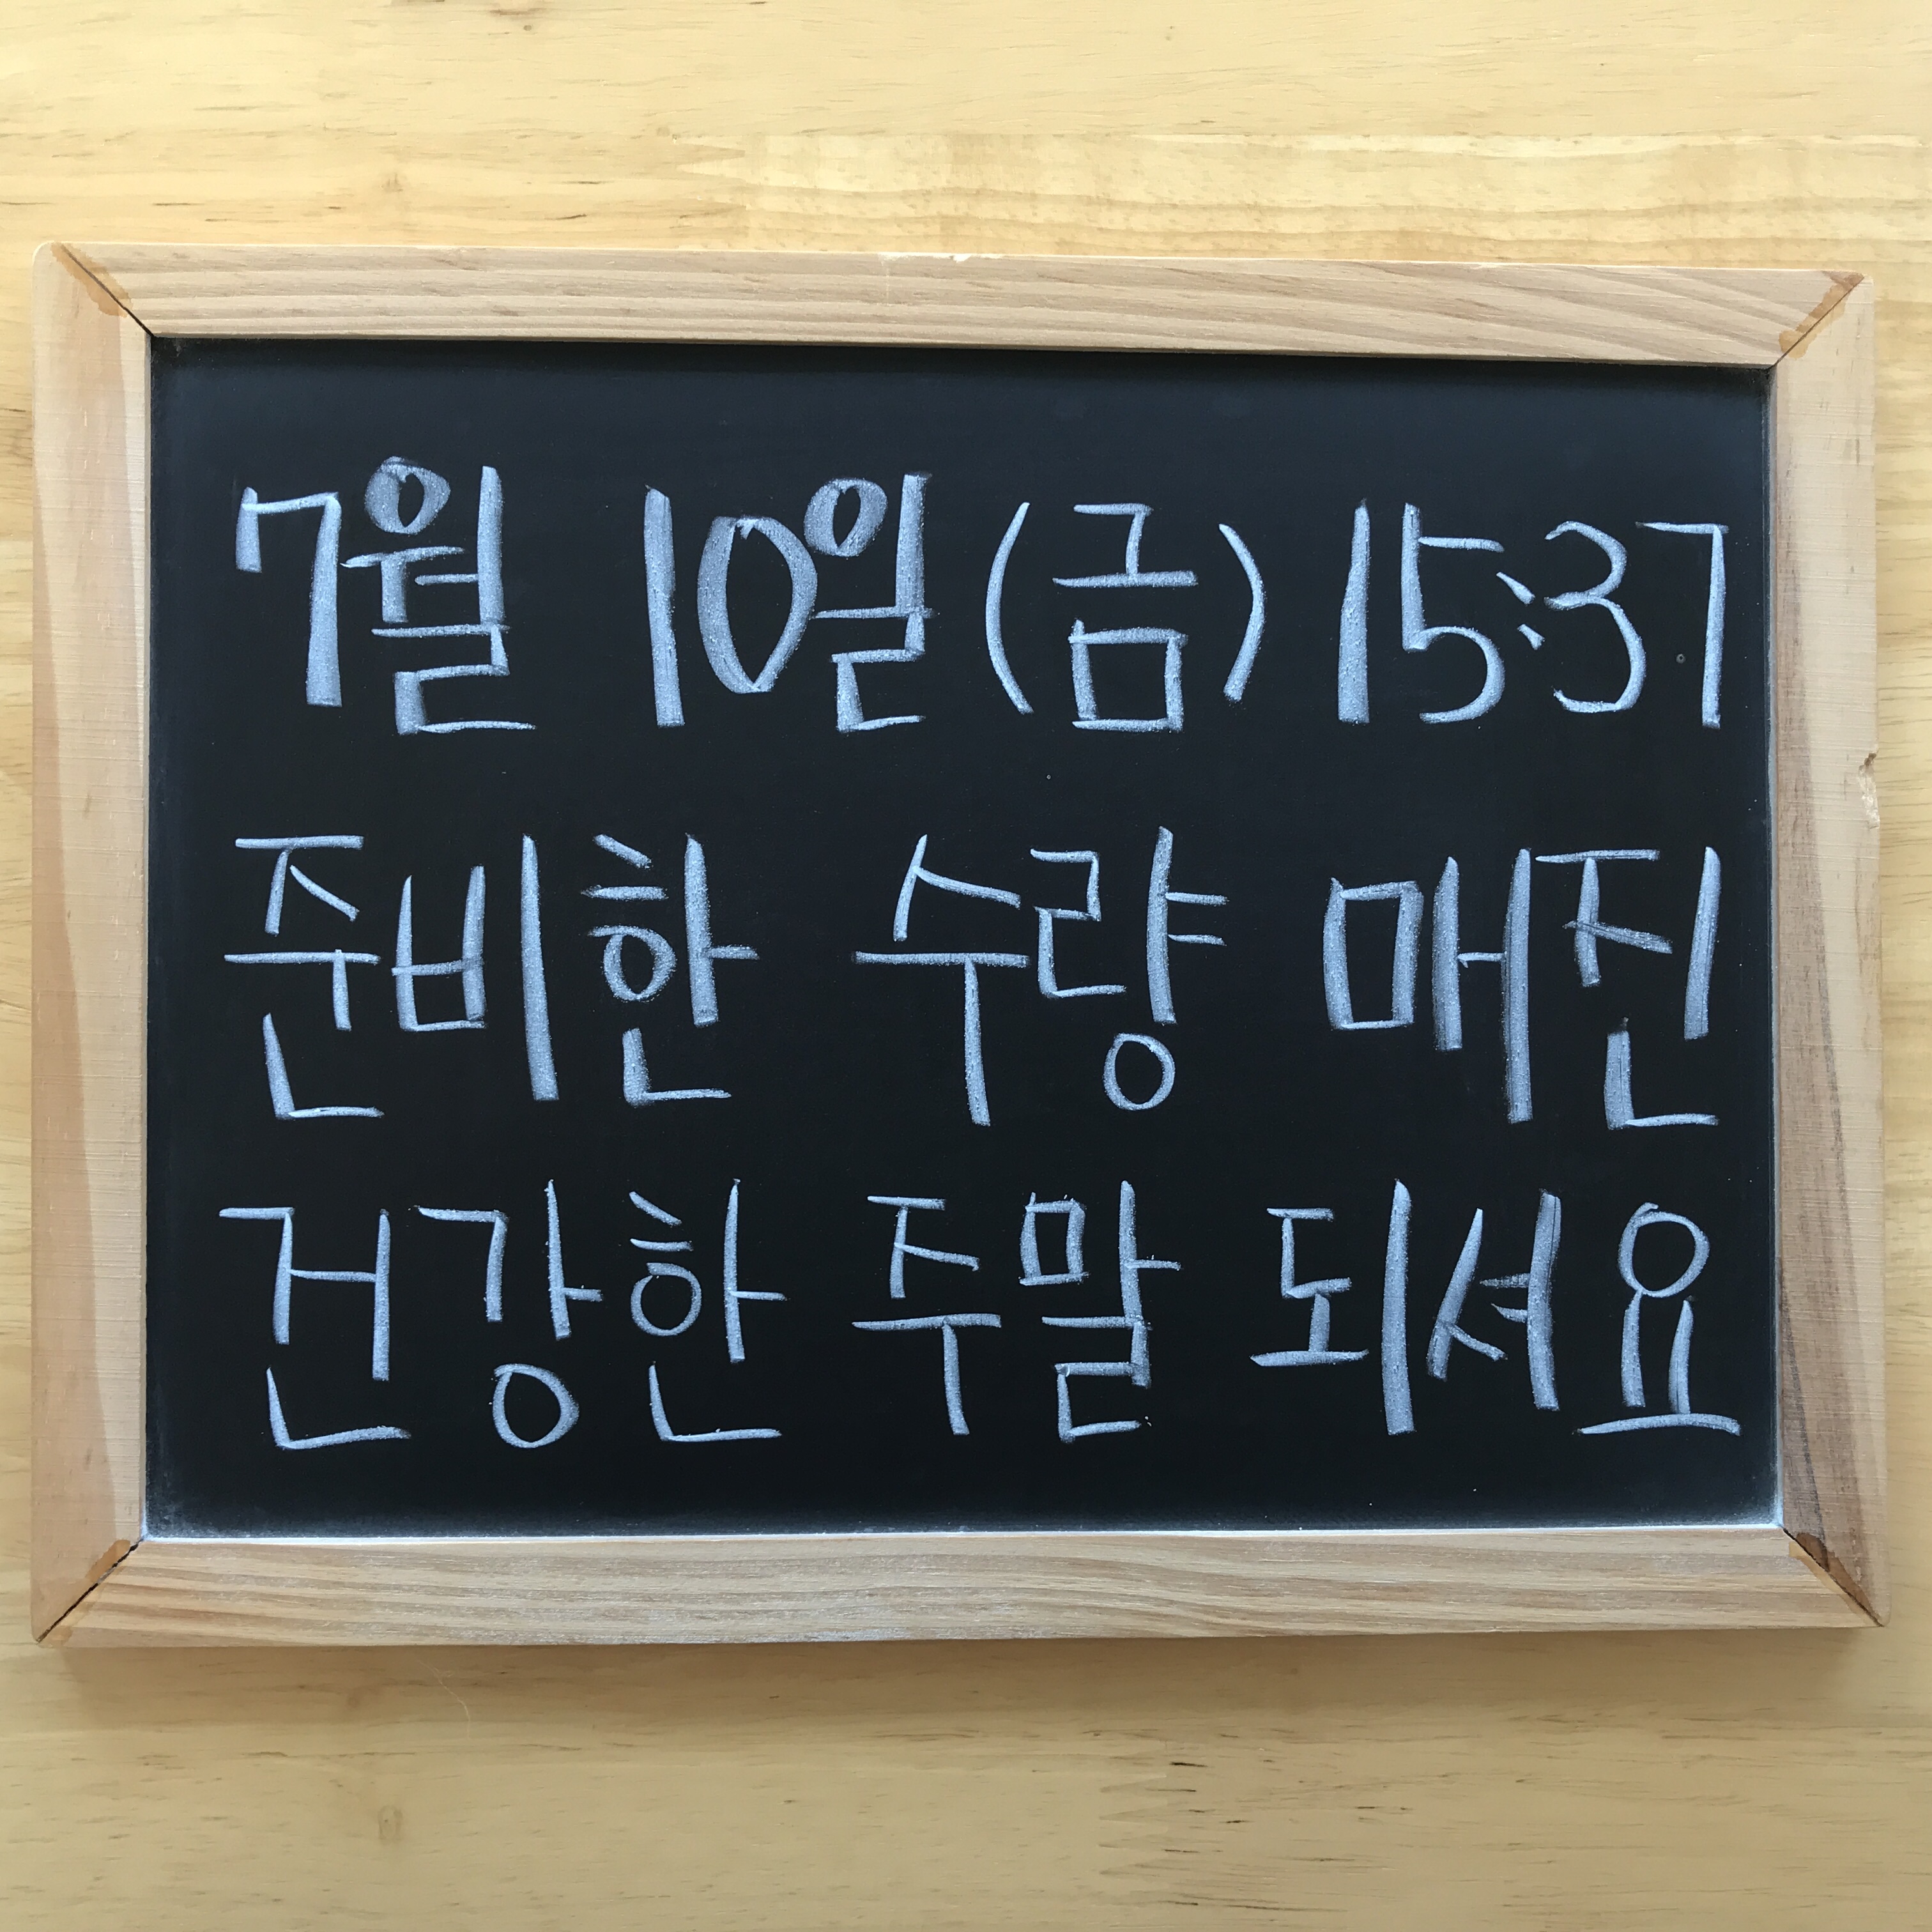 7월 10일(금) 15:37
준비한 수량 매진
건강한 주말 되셔요